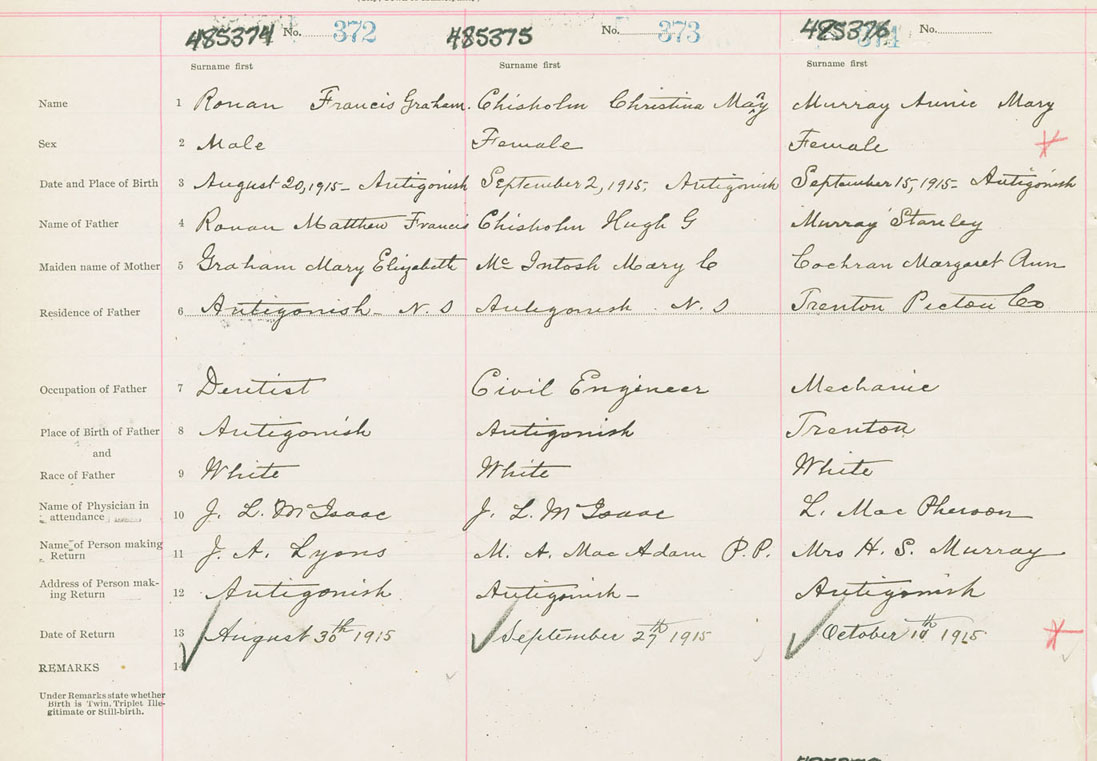 485374 No. 372 485375 No. 373 485376 374 No.
Surname first Surname first Surname first
Name 1 Ronan Francis Graham. Chisholm Christina May Murray Annie Mary
Sex 2 Male Female Female
Date and Place of Birth 3 August 20, 1915 - Antigonish September 2, 1915, Antigonish September 15, 1915 - Antigonish
Name of Father 4 Ronan Matthew Francis Chisholm Hugh G Murray Stanley
Maiden name of Mother 5 Graham Mary Elizabeth Mc Intosh Mary C Cochran Margaret Ann
Residence of Father 6 Antigonish - N. S Antigonish . N. S Trenton Pictou Co
Occupation of Father 7 Dentist Civil Engineer Mechanic
Place of Birth of Father 8 Antigonish Antigonish Trenton
and
Race of Father 9 White White White
Name of Physician in
attendance 10 J. L. McIsaac J. L. McIsaac L. Mac Pherson
Name of Person making
Return 11 J. A. Lyons M. A. Mac Adam P.P. Mrs H. S. Murray
Address of Person mak-
ing Return 12 Antigonish Antigonish - Antigonish
Date of Return 13 August 30th 1915 September 27th 1915 October 10th 1915
REMARKS 14
Under Remarks state whether
Birth is Twin, Triplet Ille-
gitimate or Still-birth.